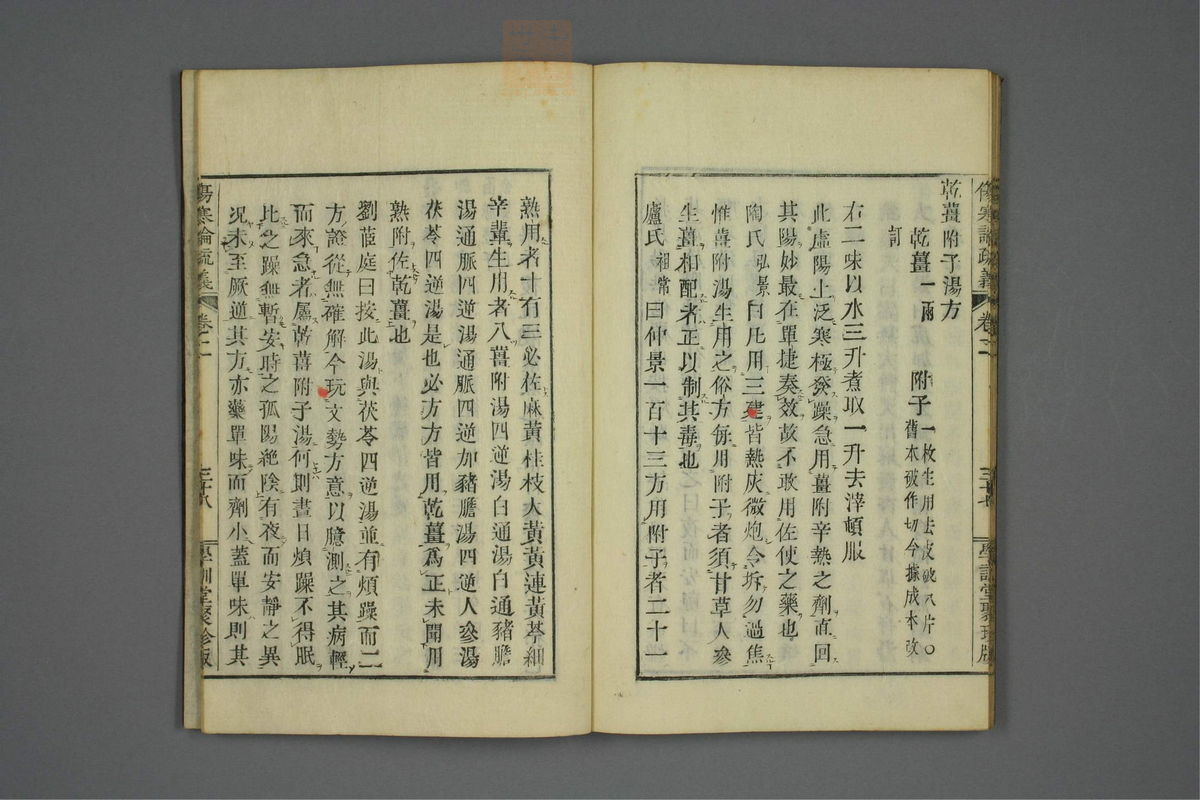 傷寒論疏義 卷二 三十七 學訓堂聚珍版
乾薑附子湯方
乾薑一兩 附子一枚生用去皮破八片○
舊本破作切今據成本改
訂
右二味以水三升煮取一升去滓頓服
此虛陽上泛寒極發躁急用薑附辛熱之劑直回
其陽妙最在單捷奏效故不敢用佐使之藥也
陶氏弘景曰凡用三建皆熱灰微炮令拆勿過焦
惟薑附湯生用之俗方每用附子者須甘草人參
生薑相配者正以制其毒也
盧氏祖常曰仲景一百十三方用附子者二十一
熟用者十有三必佐麻黃桂枝大黃黃連黃芩細
辛輩生用者八薑附湯四逆湯白通湯白通豬膽
湯通脈四逆湯通脈四逆加豬膽湯四逆人參湯
茯苓四逆湯是也必方方皆用乾薑爲正未聞用
熟附佐乾薑也
劉茝庭曰按此湯與茯苓四逆湯並有煩躁而二
方證從無確解今玩文勢方意以臆測之其病輕
而來急者屬乾薑附子湯何則晝日煩躁不得眠
比之躁無暫安時之孤陽絶陰有夜而安靜之異
況未至厥逆其方亦藥單味而劑小蓋單味則其
傷寒論疏義 卷二 三十八 學訓堂聚珍版